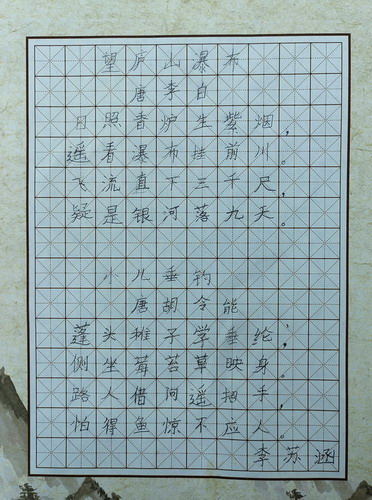 望庐山瀑布
唐 李白
日照香炉生紫烟，
遥看瀑布挂前川。
飞流直下三千尺，
疑是银河落九天。
小儿垂钓
唐 胡令能
蓬头稚子学垂纶，
侧坐莓苔草映身。
路人借问遥招手，
怕得鱼惊不应人。
李苏涵